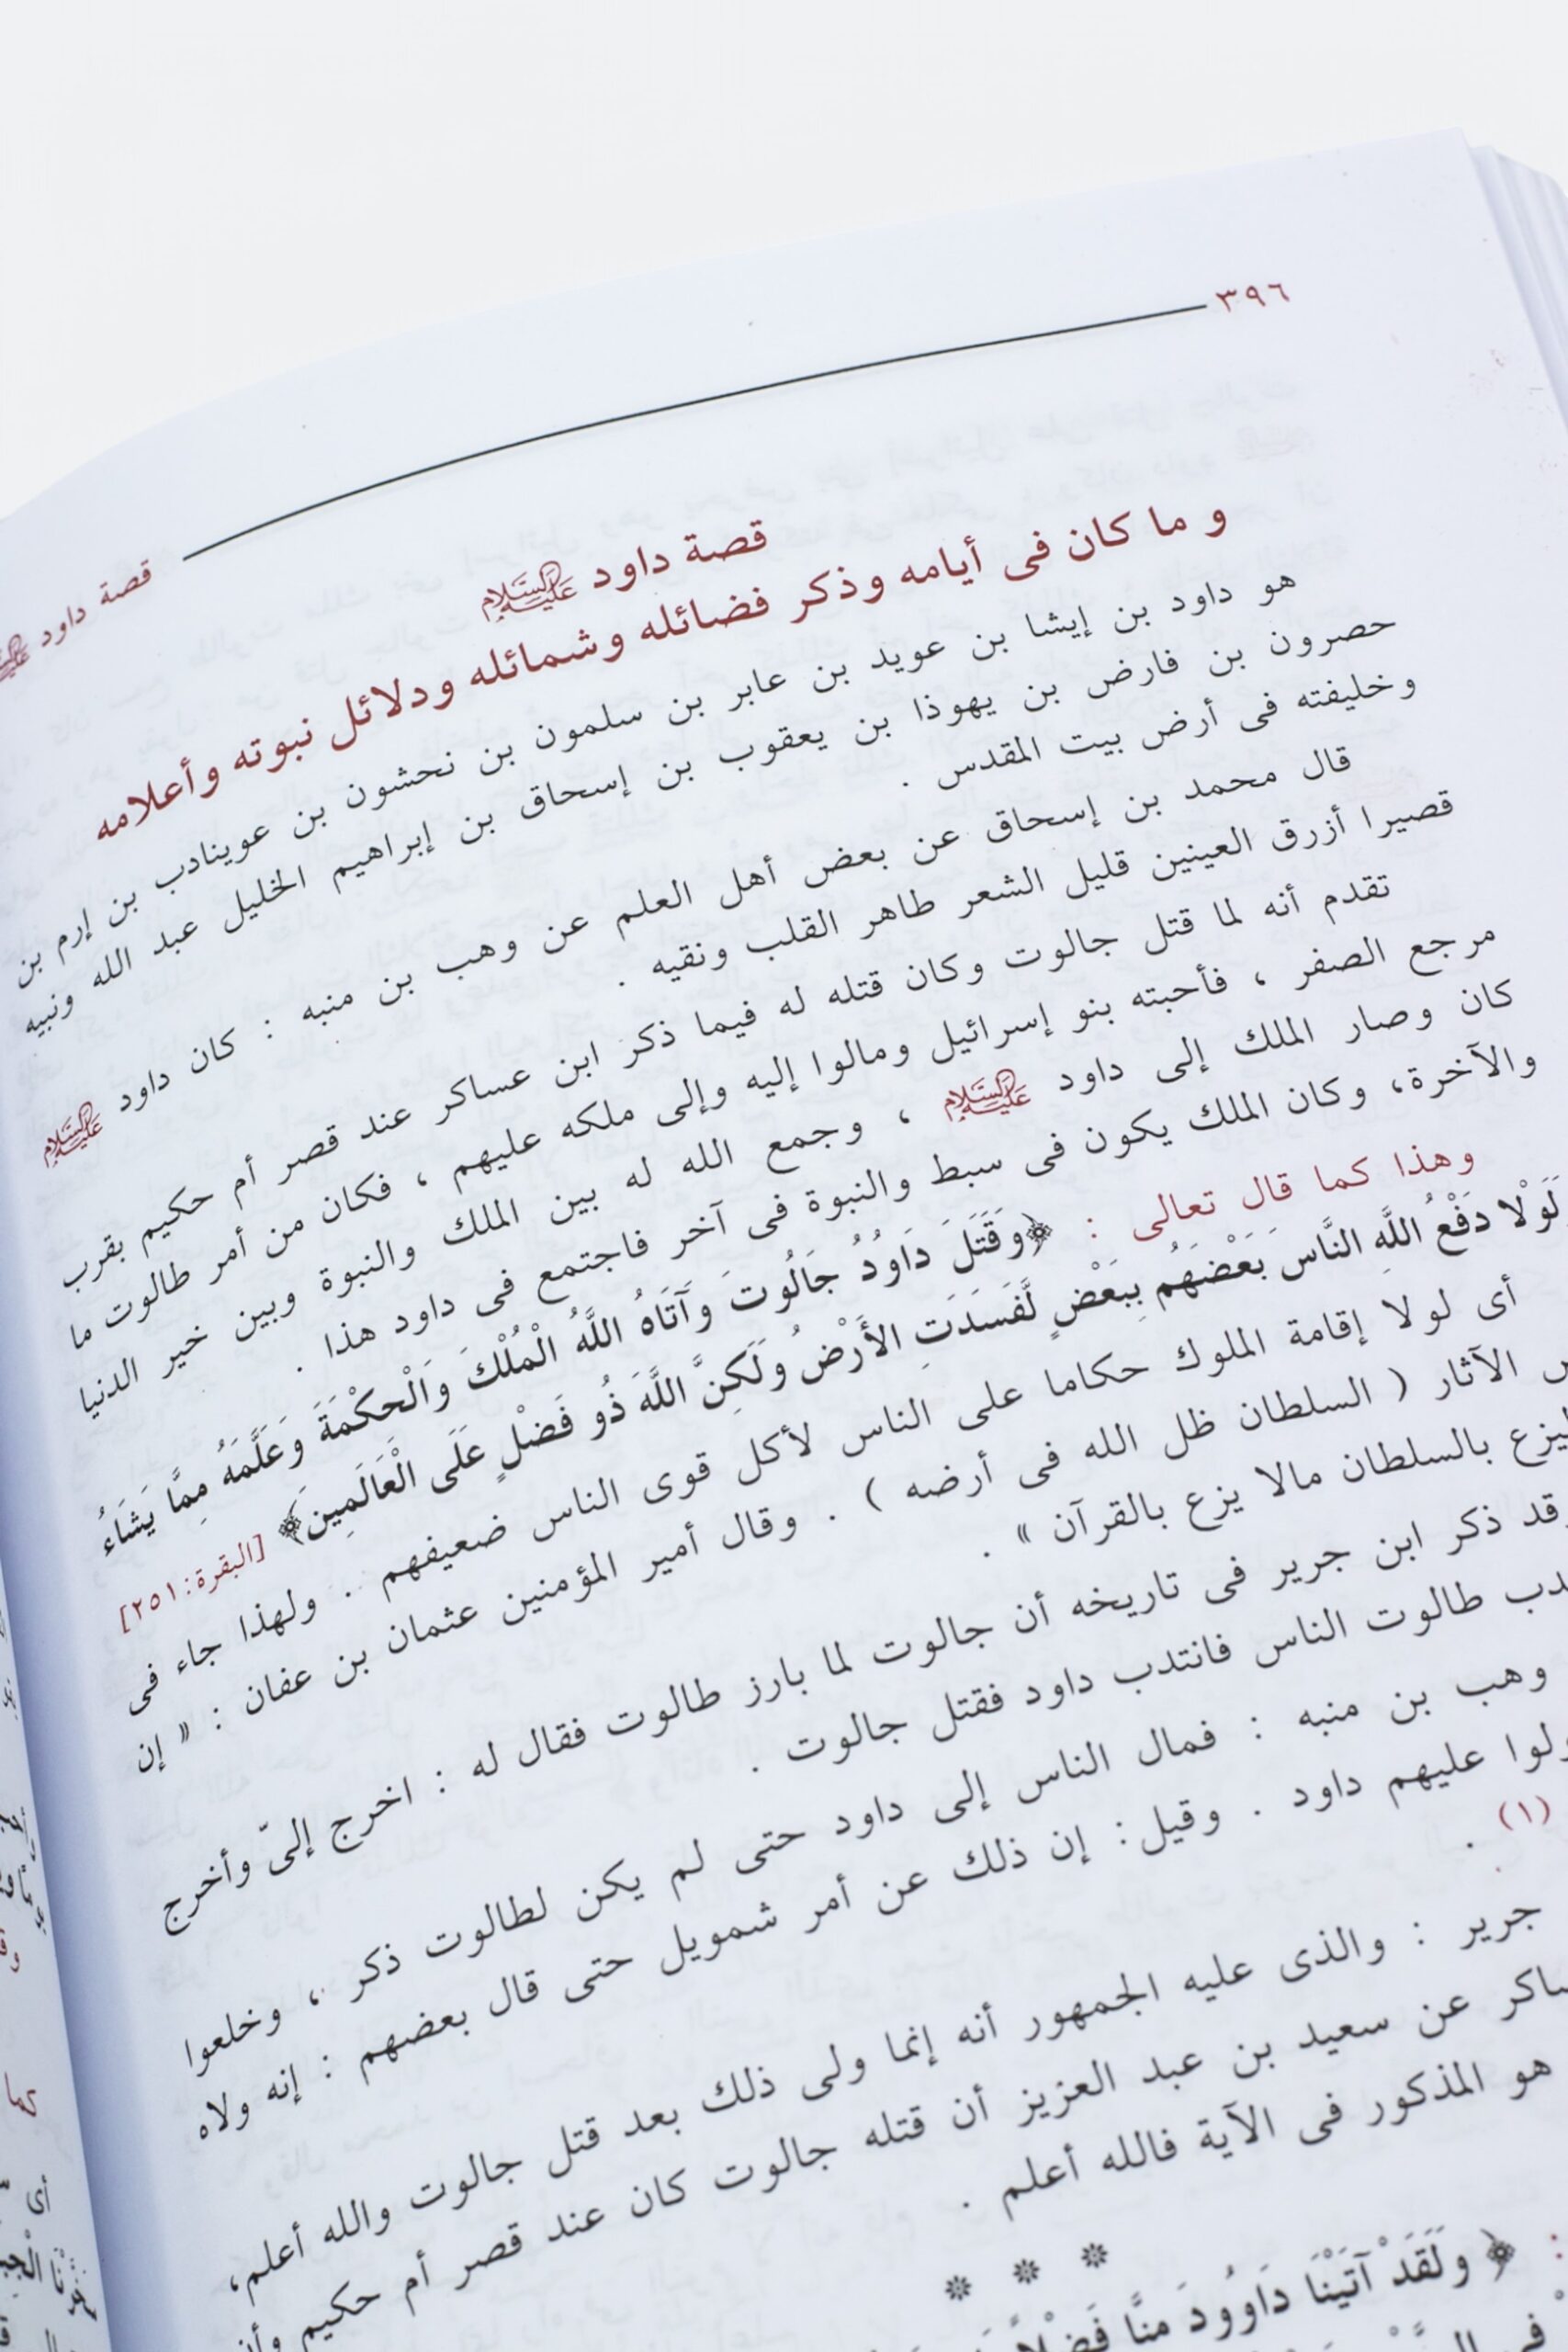 ٣٩٦
قصة داود
قصة داود عليه السلام
و ما كان فى أيامه وذكر فضائله وشمائله ودلائل نبوته وأعلامه
هو داود بن إيشا بن عويد بن عابر بن سلمون بن نحشون بن عوينادب بن إرم بن
حصرون بن فارض بن يهوذا بن يعقوب بن إسحاق بن إبراهيم الخليل عبد الله ونبيه
وخليفته فى أرض بيت المقدس .
قال محمد بن إسحاق عن بعض أهل العلم عن وهب بن منبه : كان داود عليه السلام
قصيرا أزرق العينين قليل الشعر طاهر القلب ونقيه .
تقدم أنه لما قتل جالوت وكان قتله له فيما ذكر ابن عساكر عند قصر أم حكيم بقرب
مرجع الصفر ، فأحبته بنو إسرائيل ومالوا إليه وإلى ملكه عليهم ، فكان من أمر طالوت ما
كان وصار الملك إلى داود عليه السلام ، وجمع الله له بين الملك والنبوة وبين خير الدنيا
والآخرة، وكان الملك يكون فى سبط والنبوة فى آخر فاجتمع فى داود هذا .
وهذا كما قال تعالى : ﴿وَقَتَلَ دَاوُدُ جَالُوتَ وَآتَاهُ اللَّهُ الْمُلْكَ وَالْحِكْمَةَ وَعَلَّمَهُ مِمَّا يَشَاءُ
لَوْلا دَفْعُ اللَّهِ النَّاسَ بَعْضَهُم بِبَعْضٍ لَّفَسَدَتِ الأَرْضُ وَلَكِنَّ اللَّهَ ذُو فَضْلٍ عَلَى الْعَالَمِينَ﴾ [البقرة: ٢٥١]
أى لولا إقامة الملوك حكاما على الناس لأكل قوى الناس ضعيفهم . ولهذا جاء فى
الآثار ( السلطان ظل الله فى أرضه ) . وقال أمير المؤمنين عثمان بن عفان : « إن
ليزع بالسلطان مالا يزع بالقرآن » .
وقد ذكر ابن جرير فى تاريخه أن جالوت لما بارز طالوت فقال له : اخرج إلىّ وأخرج
طالوت الناس فانتدب داود فقتل جالوت .
وهب بن منبه : فمال الناس إلى داود حتى لم يكن لطالوت ذكر ، وخلعوا
عليهم داود . وقيل: إن ذلك عن أمر شمويل حتى قال بعضهم : إنه ولاه
(١) .
جرير : والذى عليه الجمهور أنه إنما ولى ذلك بعد قتل جالوت والله أعلم،
عن سعيد بن عبد العزيز أن قتله جالوت كان عند قصر أم حكيم وأن
هو المذكور فى الآية فالله أعلم .
* * *
: ﴿ وَلَقَدْ آتَيْنَا دَاوُودَ مِنَّا فَضْلاً